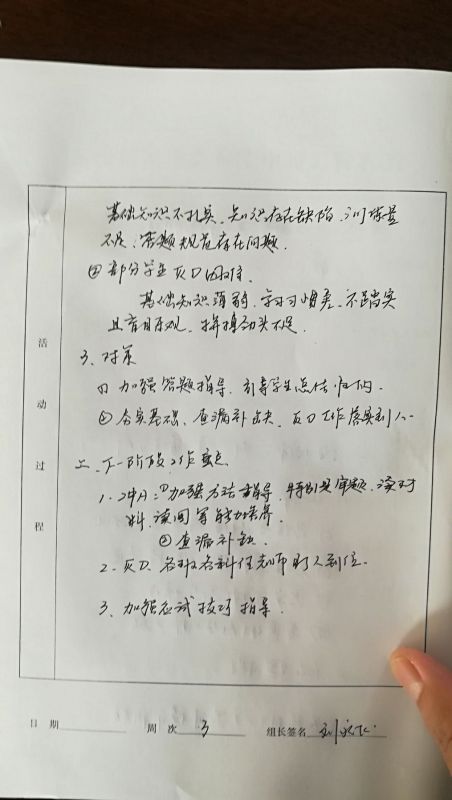 基础知识不扎实、知识存在缺陷、训练量
不足、答题规范存在问题.
②部分学生
基础知识薄弱、学习习惯差、不踏实
且盲目乐观、拼搏劲头不足.
3、对策
① 加强答题指导、引导学生总结归纳.
② 夯实基础、查漏补缺、工作落实到人
二、下一阶段工作重点
1、冲A:①加强方法指导、特别是审题、读材
料、读问等能力培养.
②查漏补缺.
2、各班各科任老师盯人到位.
3、加强应试技巧指导.
活
动
过
程
日 期
周 次 3
组长签名